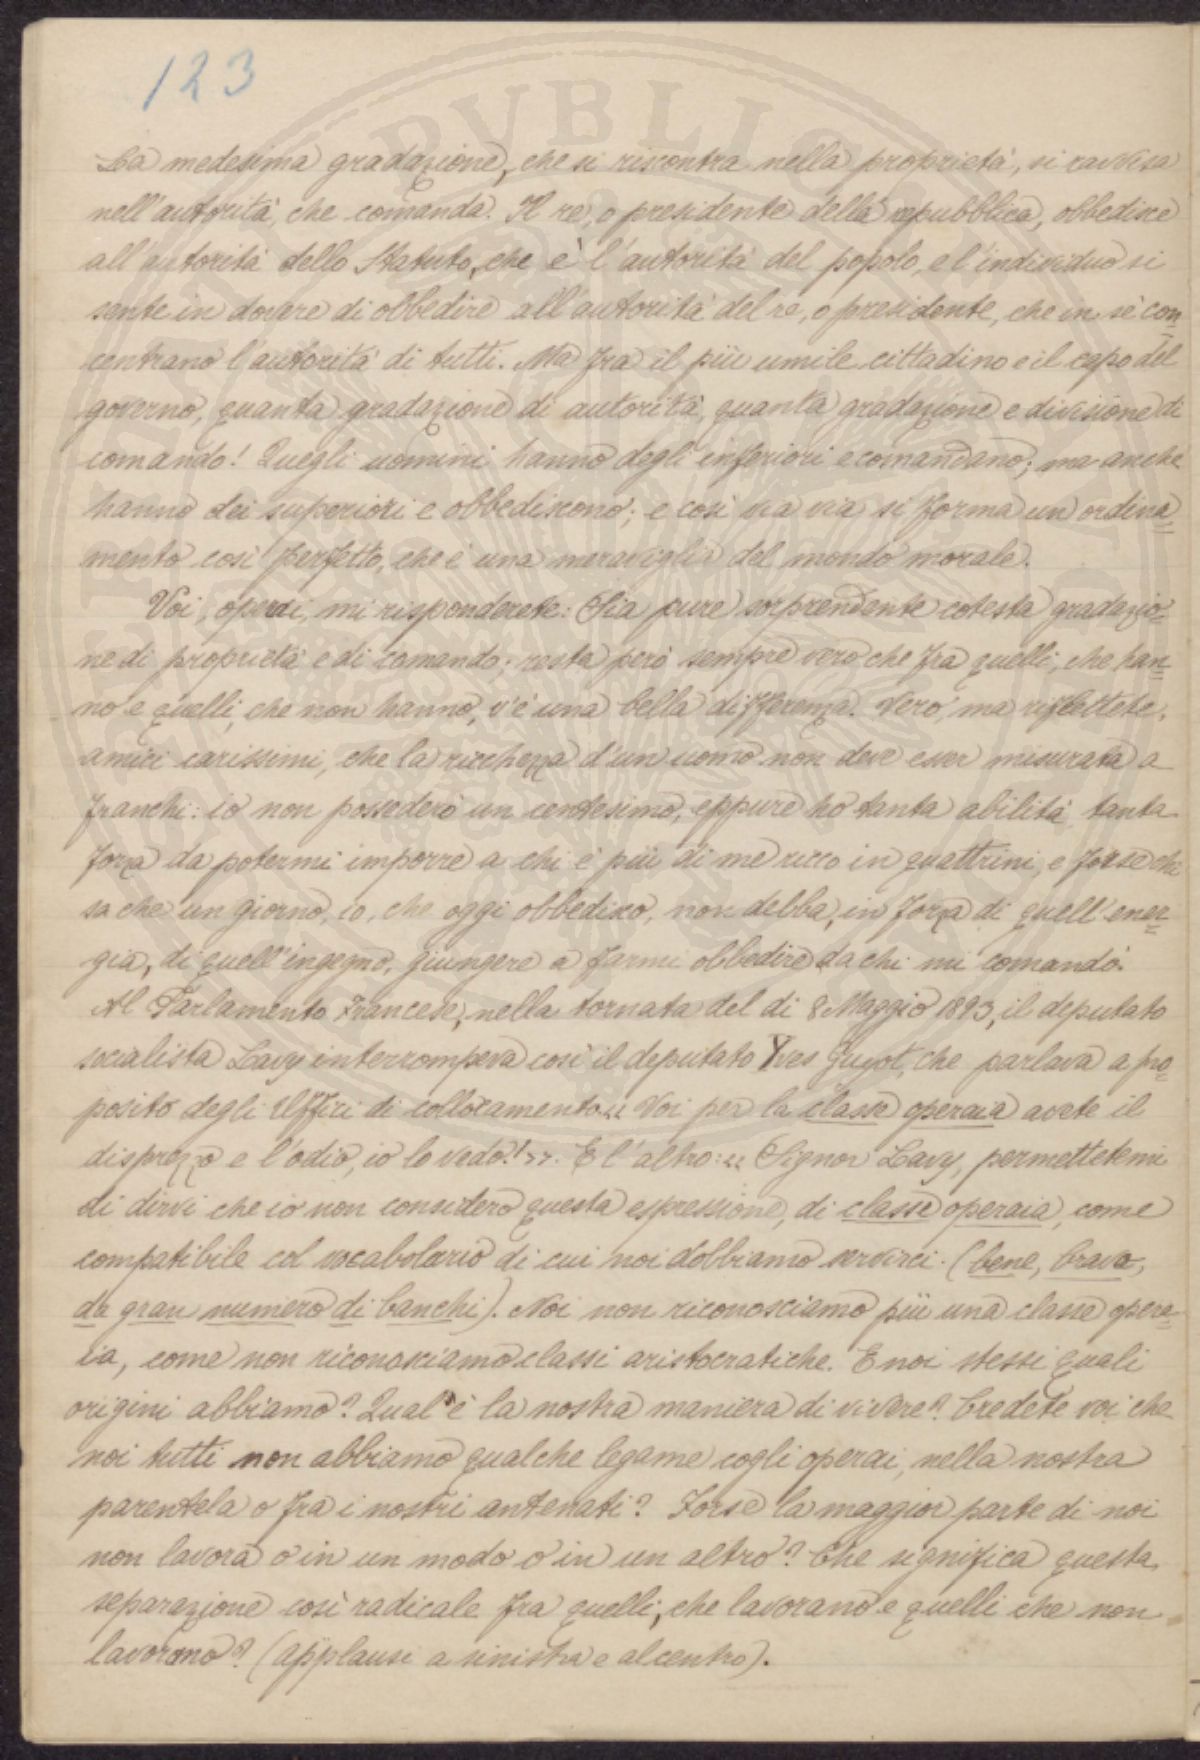 123
La medesima gradazione, che si riscontra nella proprietà, si ravvisa
nell'autorità, che comanda. Il re, o presidente della repubblica, obbedisce
all'autorità dello Statuto, che è l'autorità del popolo, e l'individuo si
sente in dovere di obbedire all'autorità del re, o presidente, che in sè con=
centrano l'autorità di tutti. Ma fra il più umile cittadino e il capo del
governo, quanta gradazione di autorità, quanta gradazione e divisione di
comando! Quegli uomini hanno degli inferiori e comandano; ma anche
hanno dei superiori e obbediscono; e così via via si forma un ordina=
mento così perfetto, che è una meraviglia del mondo morale.
Voi, operai, mi risponderete: Sia pure sorprendente cotesta gradazio=
ne di proprietà e di comando; resta però sempre vero che fra quelli, che han=
no e quelli, che non hanno, v'è una bella differenza. Vero, ma riflettete,
amici carissimi, che la ricchezza d'un uomo non deve esser misurata a
franchi: io non possederò un centesimo, eppure ho tanta abilità, tanta
forza da potermi imporre a chi è più di me ricco in quattrini, e forse chi
sa che un giorno, io, che oggi obbedisco, non debba, in forza di quell'ener=
gia, di quell'ingegno, giungere a farmi obbedire da chi mi comandò.
Al Parlamento Francese, nella tornata del dì 8 Maggio 1893, il deputato
socialista Lavy interrompeva così il deputato Yves Guyot, che parlava a pro=
posito degli Uffici di collocamento « Voi per la classe operaia avete il
disprezzo e l'odio, io lo vedo! ». E l'altro: « Signor Lavy, permettetemi
di dirvi che io non considero questa espressione, di classe operaia, come
compatibile col vocabolario di cui noi dobbiamo servirci. (bene, bravo,
da gran numero di banchi). Noi non riconosciamo più una classe opera=
ia, come non riconosciamo classi aristocratiche. E noi stessi quali
origini abbiamo? Qual'è la nostra maniera di vivere? Credete voi che
noi tutti non abbiamo qualche legame cogli operai, nella nostra
parentela o fra i nostri antenati? Forse la maggior parte di noi
non lavora o in un modo o in un altro? Che significa questa
separazione così radicale fra quelli, che lavorano e quelli che non
lavorano? (applausi a sinistra e al centro).